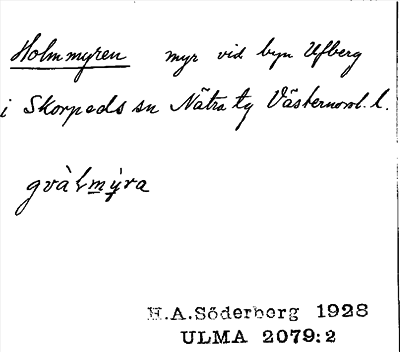 Holmmyren myr vid byn Ufberg
i Skorpeds sn Nätra tg Västernorrl. l.
H.A.Söderberg 1928
ULMA 2079:2